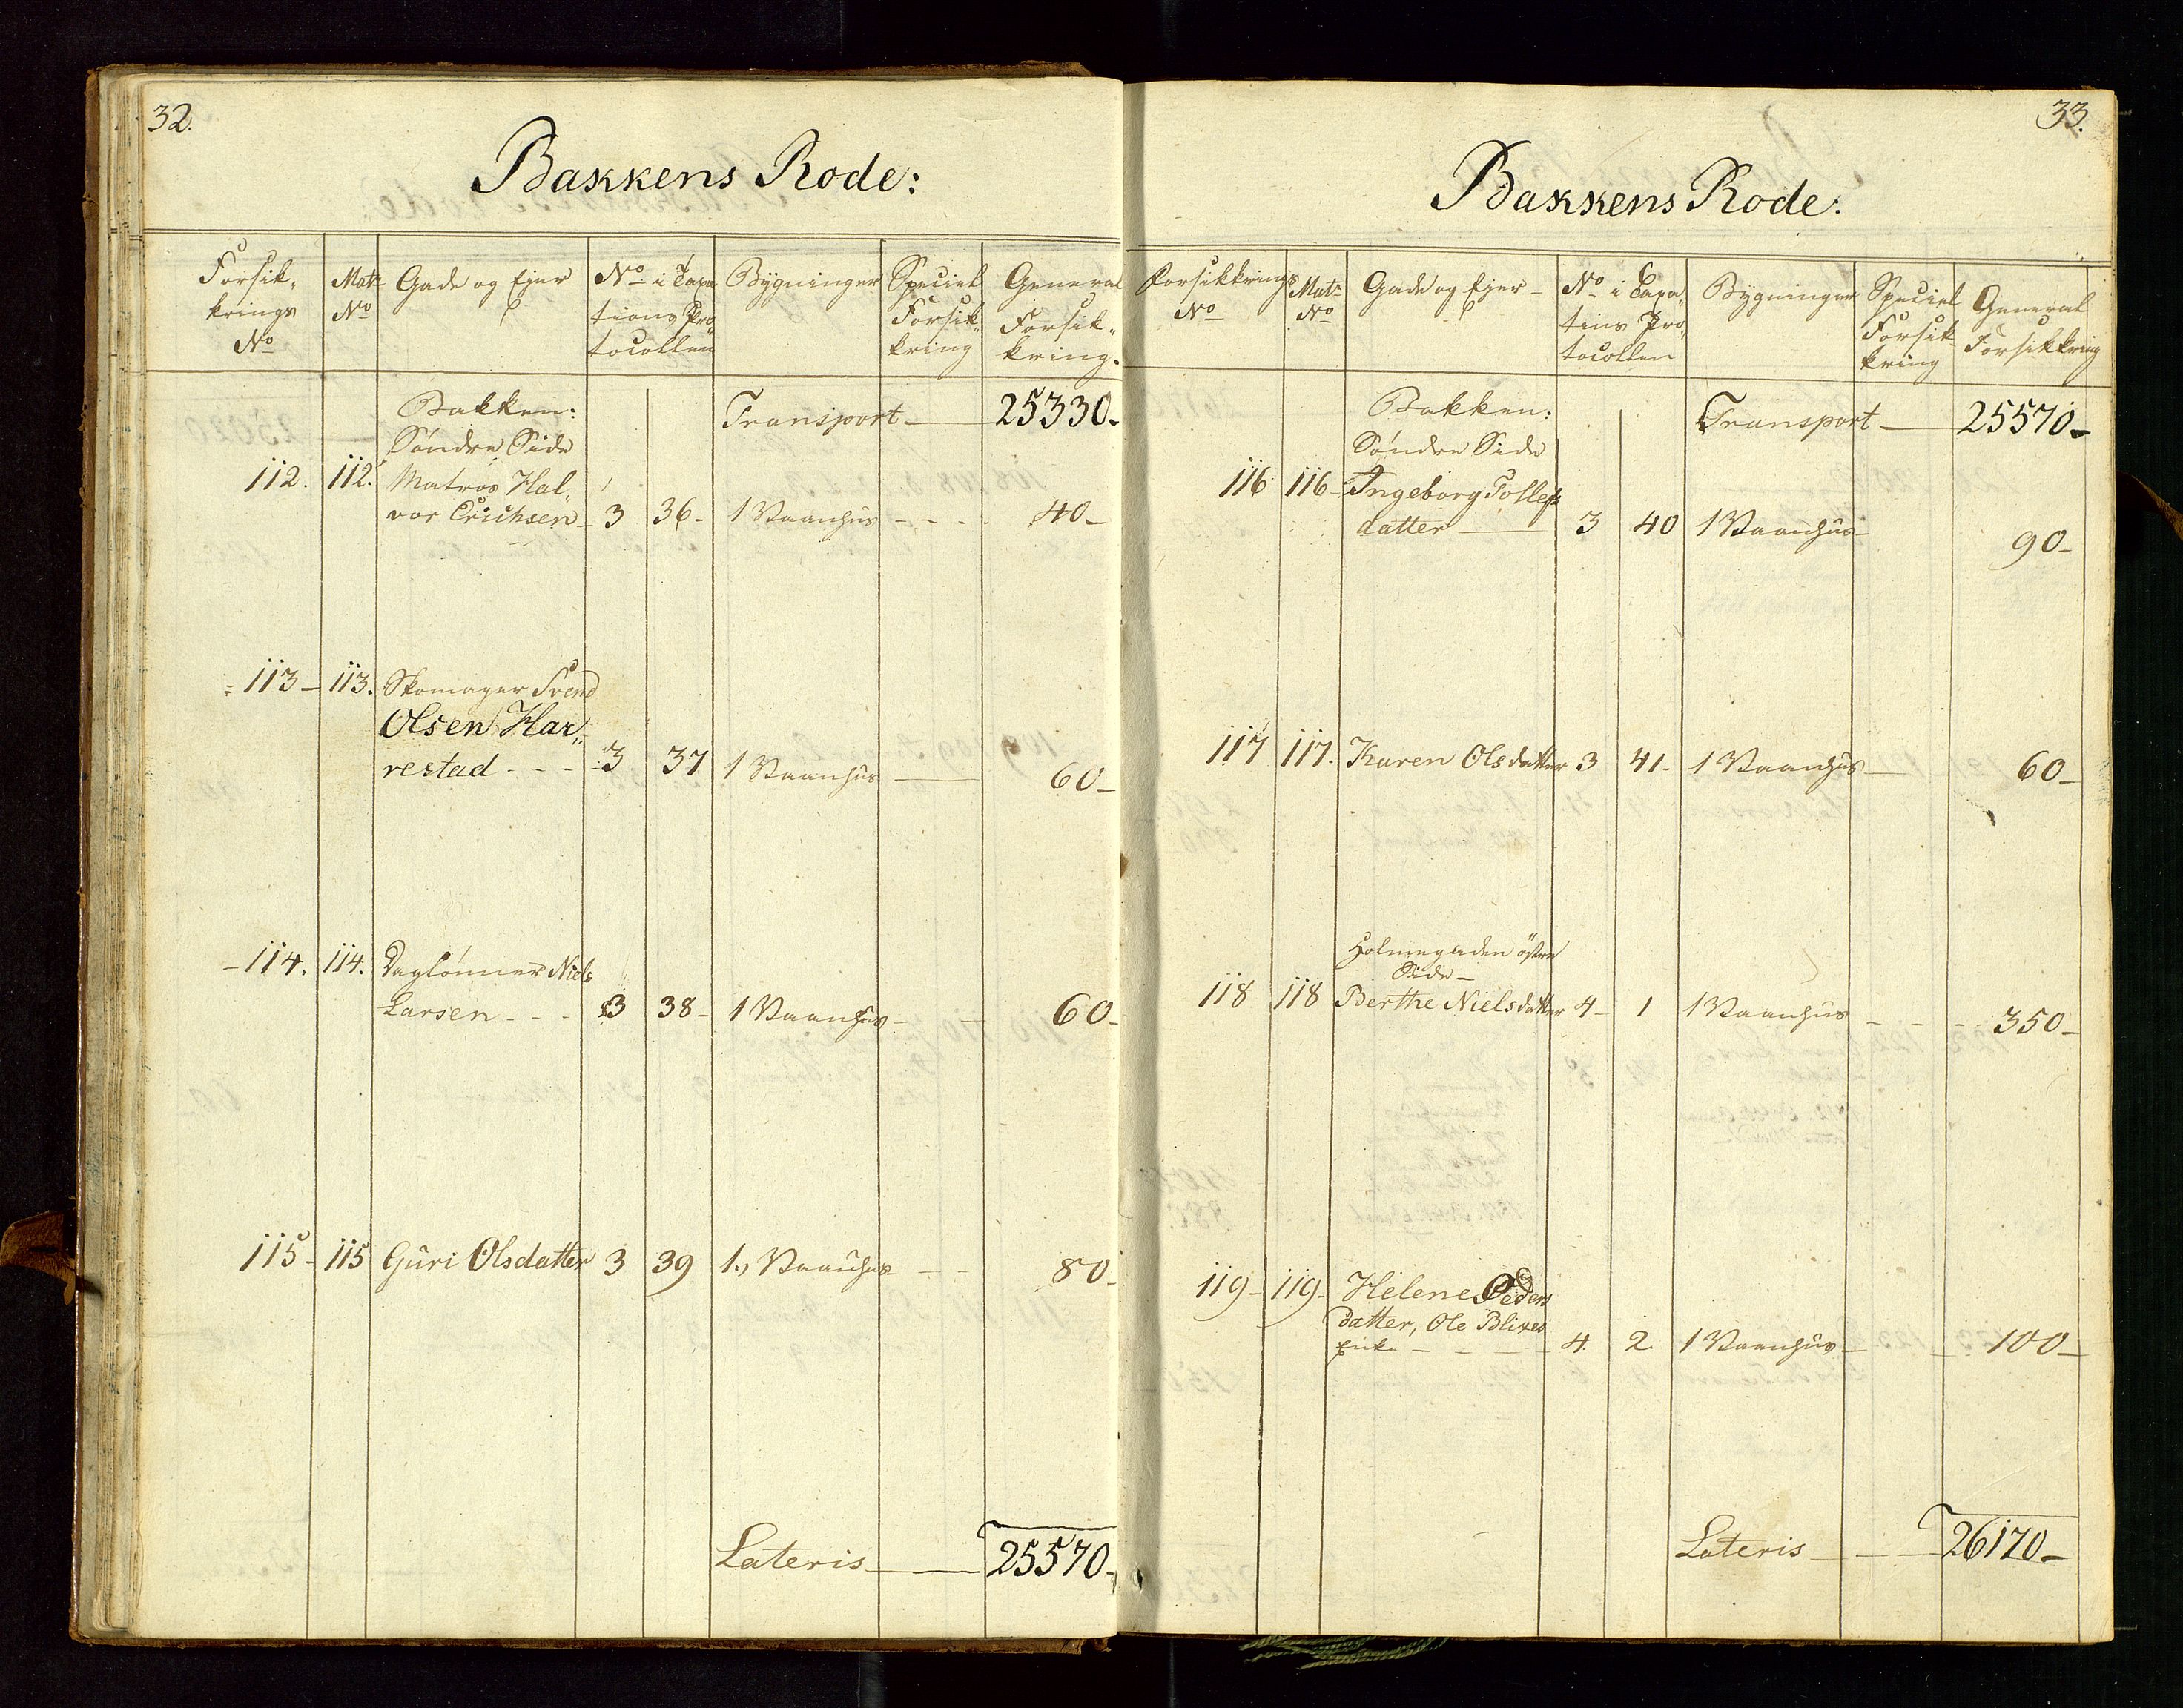 32.
Bakkens Rode:
Forsik-
krings
No
Matr
No
Gade og Ejer
No i Taxa
tions Pro
tocollen
Bygninger
Speciel
Forsik-
kring
General
Forsik-
kring.
Bakken:
Søndre Side
Transport — 25330-
112. 112. Matros Hal-
vor Erichsen - 3 36- 1 Vaanhus - - - 40-
113- 113. Skomager Svend
Olsen Har-
restad - - - 3 37 1 Vaanhus — 60-
-114. 114. Daglønner Niels
Larsen - - - 3 38- 1 Vaanhus - - 60-
115- 115 Guri Olsdatter 3 39 1., Vaanhus - - 80-
Lateris — 25570-
33.
Bakkens Rode:
Forsikkrings
No
Matr
No
Gade og Ejer-
No i Taxa
tions Pro
tocollen
Bygninger
Speciel
Forsik
kring
General
Forsikkring
Bakken:
Søndre Side
Transport — 25570-
116 116- Ingeborg Tollefs
datter — 3 40 1 Vaanhus- 90-
117 117. Karen Olsdatter 3 41- 1 Vaanhus — 60-
Holmegaden østre
Side-
118 118 Berthe Nielsdatter 4- 1 1 Vaanhus - - - 350-
119- 119- Helene Peders
datter, Ole Blixes
Enke - - - 4. 2. 1 Vaanhus - 100-
Lateris - - - 26170-